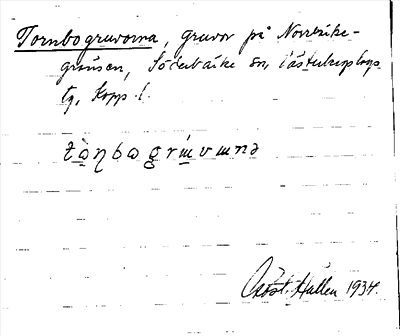 Tornbogruvorna, gruvor på Norrbärke-
gränsen, Söderbärke sn, Västerbergslags
tg, Kopp. l.
tὰŋbagrɯvɯnə
Gösta Hallén 1934.